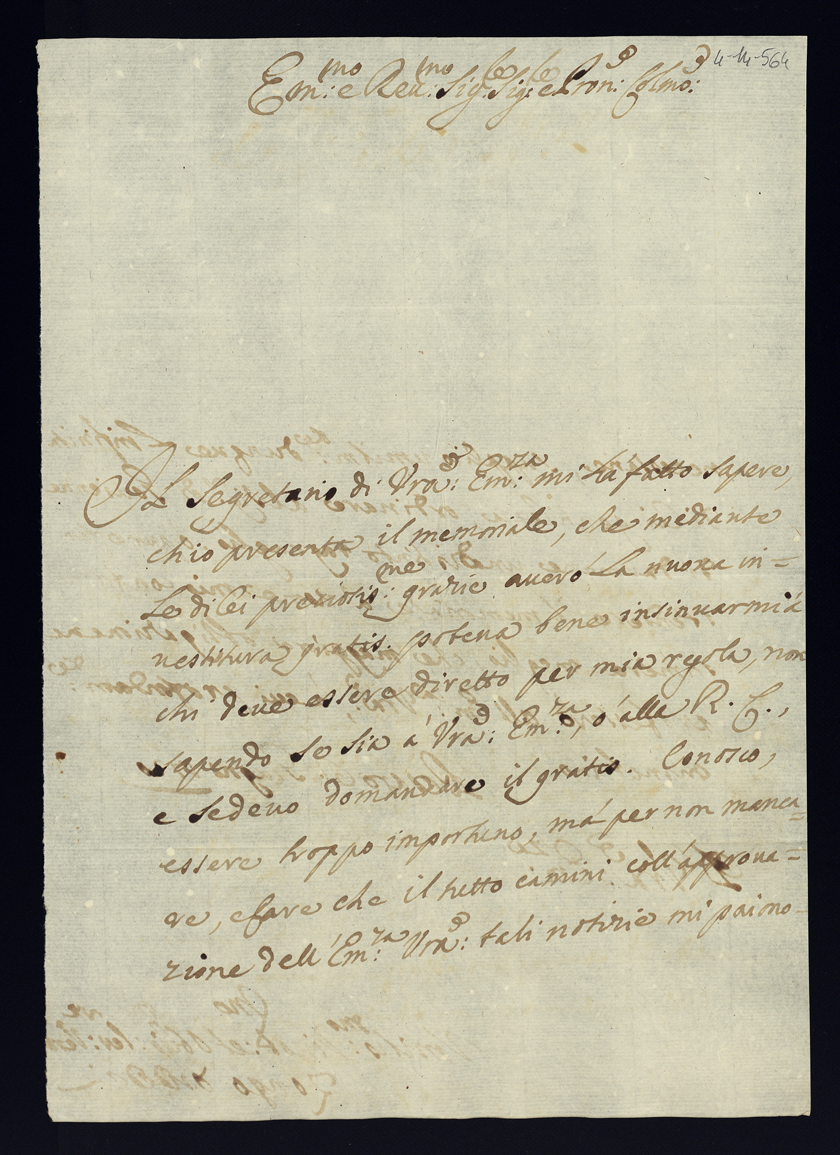 4-14-564
Em:mo e Reu:mo Sig:re Sig:re e Pron: Colmo:
Il Segretario di Vra: Em:za mi hà fatto sapere,
ch'io presenta il memoriale, che mediante
le di lei preziosis:me grazie auerò la nuoua in=
uestitura gratis. poteua bene insinuarmi à
chi deue essere diretto per mia regola, non
sapendo se sia à Vra: Em:za, ò alla R. C.,
e se deuo domandare il gratis. Conosco,
essere troppo importuno, mà per non manca=
re, e fare che il tutto camini coll'approua=
zione dell'Em:za Vra: tali notizie mi paiono